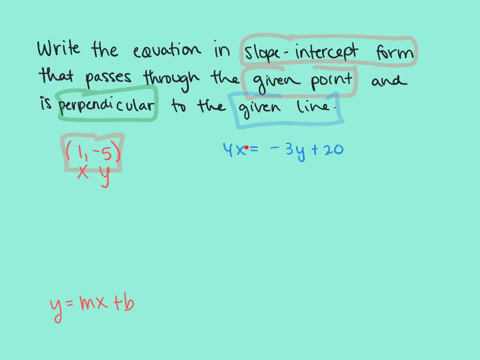 Write the equation in slope-intercept form
that passes through the given point and
is perpendicular to the given line.
(1, -5)
x y
4x = -3y + 20
y = mx + b